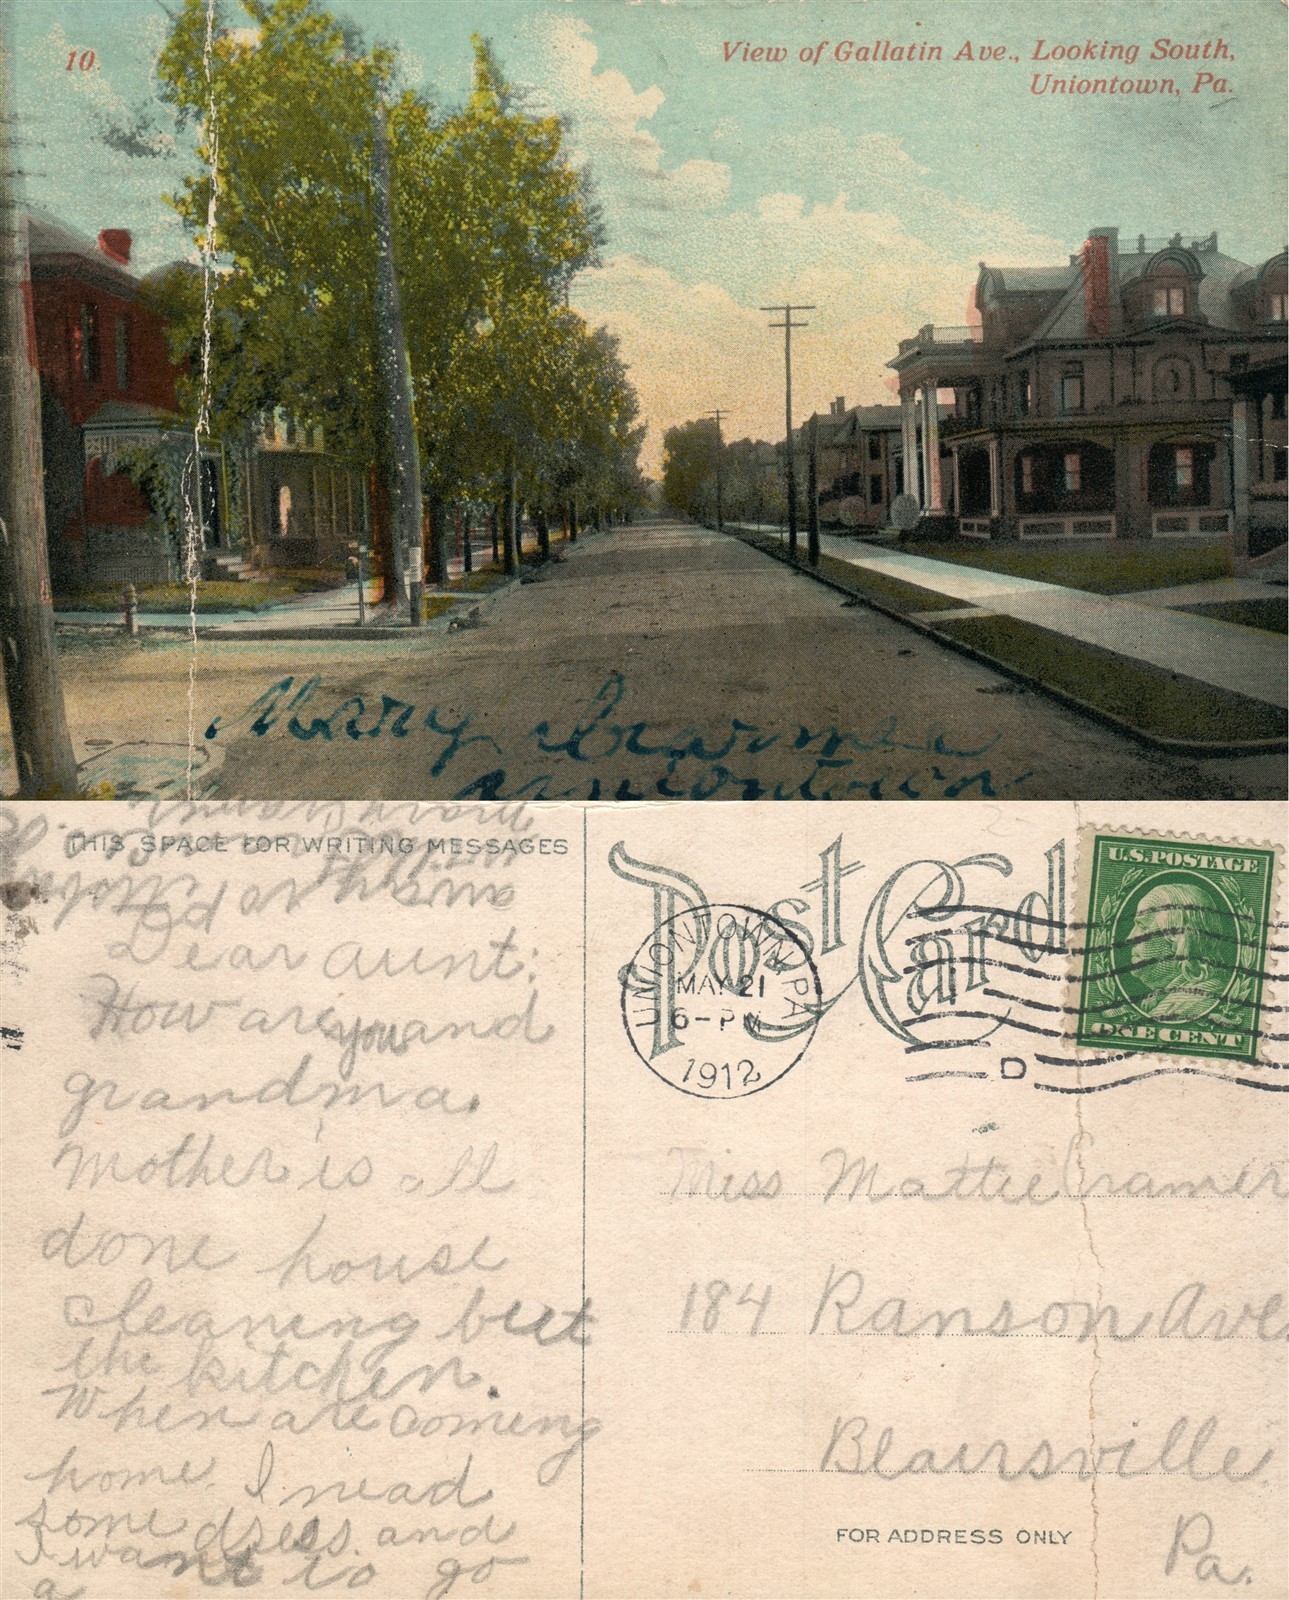 10.
View of Gallatin Ave., Looking South,
Uniontown, Pa.
Mary
THIS SPACE FOR WRITING MESSAGES
Dear Aunt:
How are you and
grandma.
Mother is all
done house
cleaning but
the kitchen.
When are comeng
home. I nead
some dress and
I want to go
a
Post Card
U.S. POSTAGE
ONE CENT
UNIONTOWN, PA
MAY 21
6-PM
1912
D
Miss Mattie Cramer
184 Ranson Ave.
Blairsville
Pa.
FOR ADDRESS ONLY